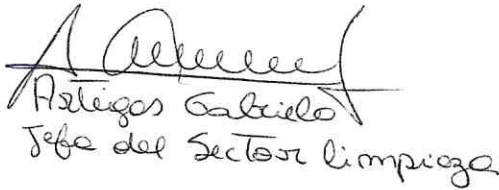 Artigas Gabriela
Jefa del Sector limpieza